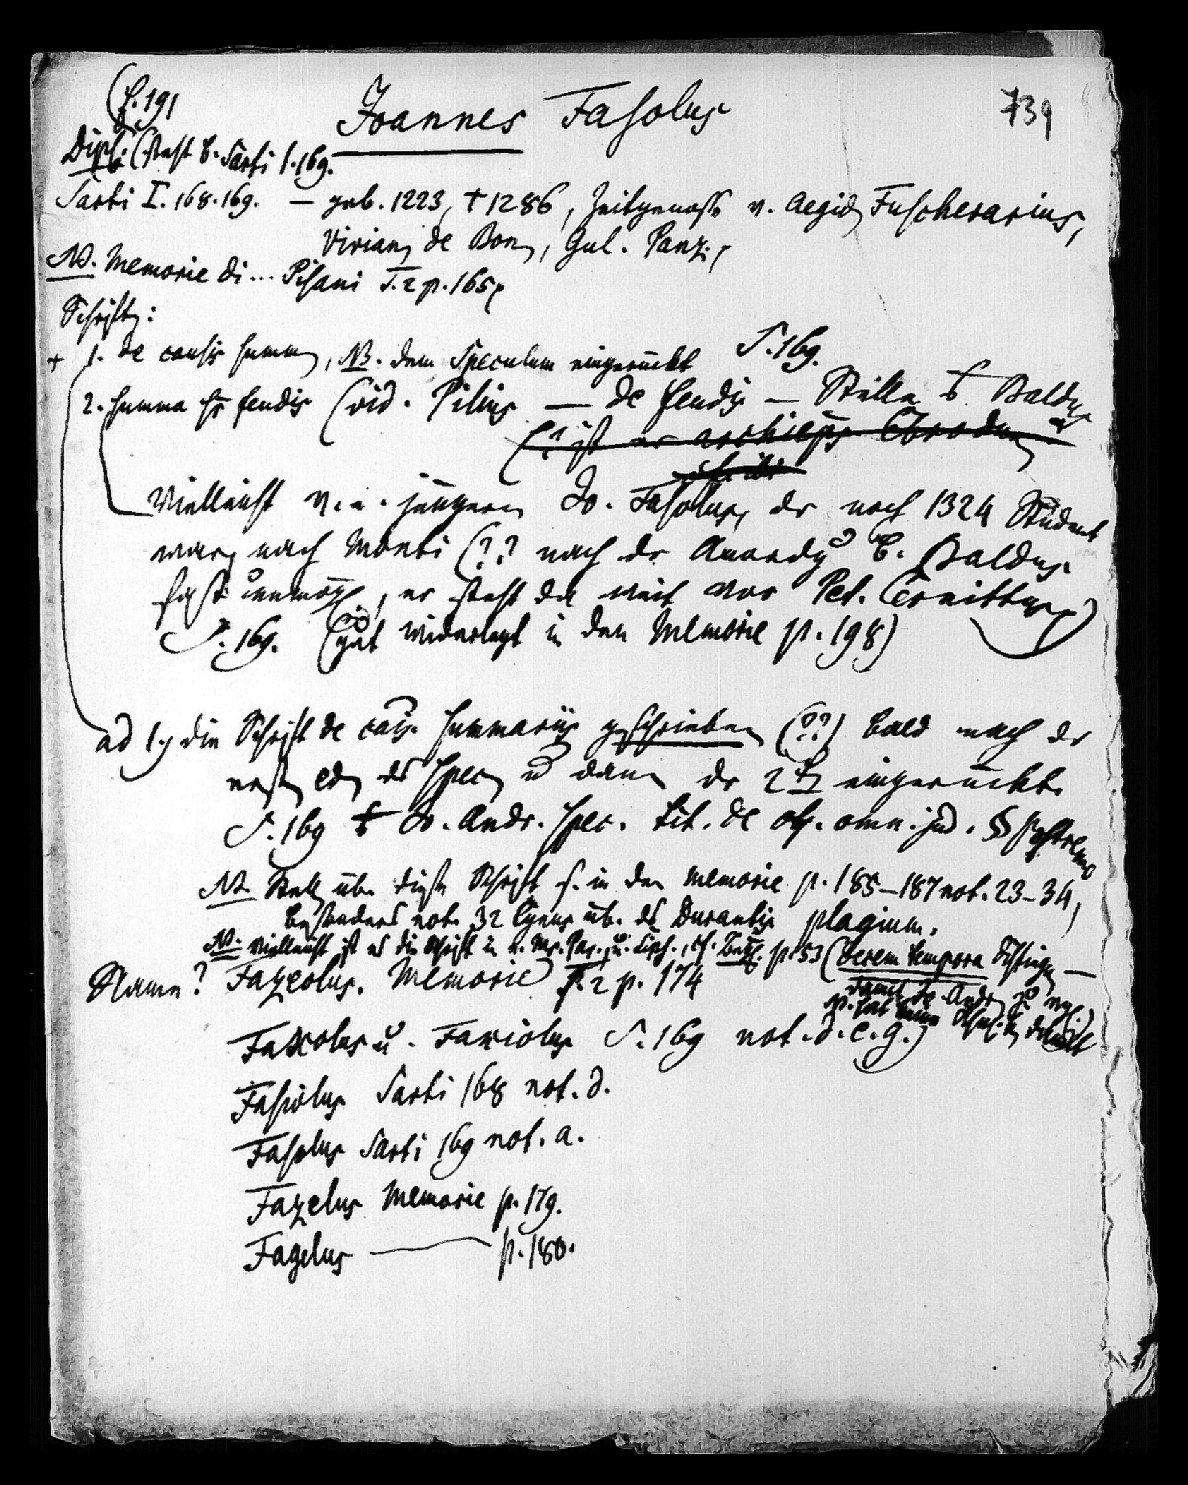 (p. 191
Joannes Fasolus
739
Dipl. (steht b. Sarti p. 169.
Sarti I. 168. 169. — geb. 1223, † 1286, Zeitgenosse v. Aegid. Fuscherarius,
Vivian. de Bon., Gul. Panz.,
NB. Memorie di... Pisani T. 2 p. 165,
Schriften:
+ 1. de causis summ., NB. dem Speculum eingerückt S. 169.
2. Summa feudis (vid. Pilius — de feudis — Stelle Baldus
(ist archieps Ebrodun
vielleicht v. e. jüngern Jo. Fasolus, der noch 1324 Student
war, nach Monti (?? nach der b. Baldus
fast unmögl., er steht da weit vor Pet.
S. 169. (gut widerlegt in den Memorie p. 198)
ad 1., die Schrift de caus. summariis geschrieben (??) bald nach der
ersten ed. des Spec. u dann der 2ten eingerückt.
S. 169 Jo. Andr. Spec. tit. de off. omn. jud. § postremo
NB. Stelle üb. diese Schrift s. in den Memorie p. 185–187 not. 23–34,
besonders not. 32 üb. des Durantis plagium.
NB. vielleicht ist es die Schrift in Ms. Par. u. Lips., cf. p. 53 (verem tempora
Name? Fazeolus. Memorie T. 2 p. 174
Faxolus u. Faxiolus S. 169 not. d. e. g.
Fasiolus Sarti 168 not. d.
Fasolus Sarti 169 not. a.
Fazelus Memorie p. 179.
Fagelus — p. 180.